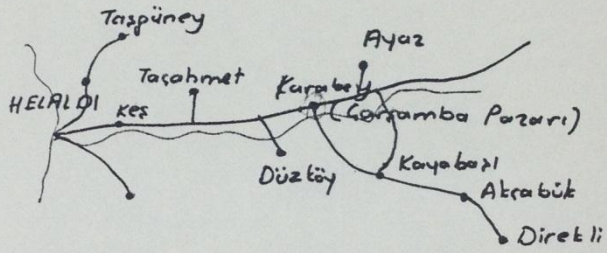 Taşpüney
Ayaz
Taçahmet
Karabey
HELALDI
Keş
(Çarşamba Pazarı)
Düzköy
Kayabaşı
Akçabük
Direkli